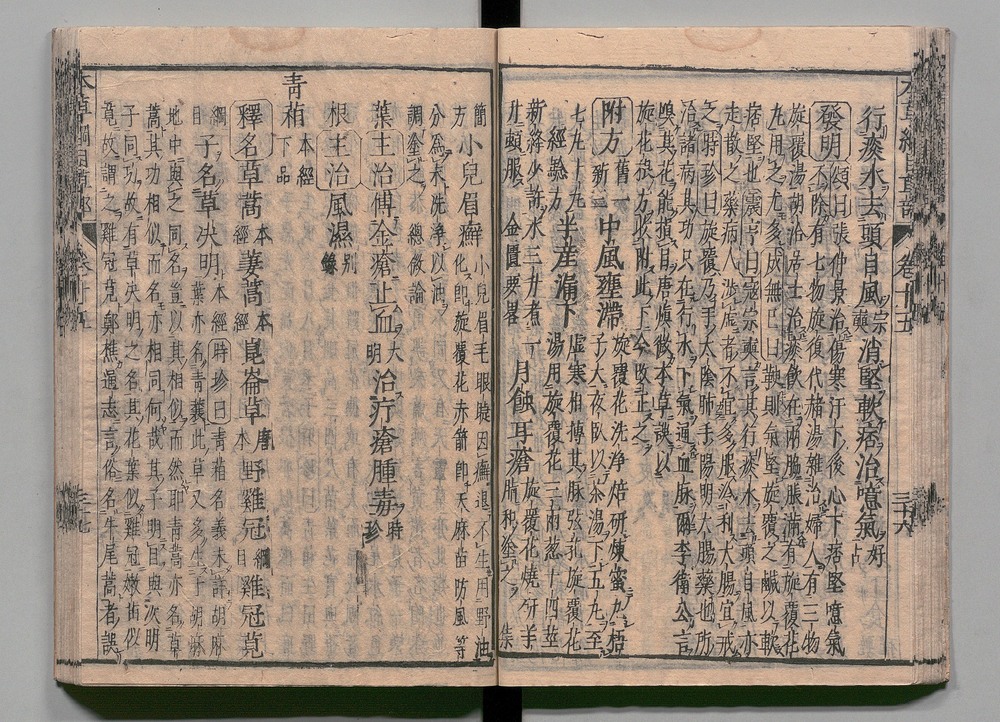 行痰水去頭目風宗奭消堅軟痞治噫氣好古
發明頌曰張仲景治傷寒汗下後心下痞堅噫氣
不除有七物旋復代赭湯雜治婦人有三物
旋覆湯胡洽居士治痰飲在兩脇脹滿有旋覆花
丸用之尤多成無己曰鞕則氣堅旋覆之鹹以軟
痞堅也震亨曰寇宗奭言其行痰水去頭目風亦
走散之藥病人涉虛者不宜多服冷利大腸宜戒
之時珍曰旋覆乃手太陰肺手陽明大腸藥也所
治諸病其功只在行水下氣通血脉爾李衛公言
嗅其花能損目唐慎微本草誤以
旋花根方收附此下今改正之
附方舊一新三中風壅滯旋覆花洗淨焙研煉蜜丸梧子大夜臥以茶湯下五丸至
七丸十丸經驗方半產漏下虛寒相摶其脉弦芤旋覆花湯用旋覆花三兩葱十四莖
新絳少許水三升煮一升頓服金匱要畧月蝕耳瘡旋覆花燒研羊脂和塗之集
簡方小兒眉癬小兒眉毛眼睫因癬退不生用野油花即旋覆花赤箭即天麻苗防風等
分為末洗淨以油調塗之總微論
葉主治傅金瘡止血大明治疔瘡腫毒時珍
根主治風濕別錄
青葙本經下品
釋名草蒿本經萋蒿本經崑崙草唐本野雞冠綱目雞冠莧
綱目子名草决明本經時珍曰青葙名義未詳胡麻
葉亦名青蘘此草又多生于胡麻
地中與之同名豈以其相似而然耶青蒿亦名草
蒿其功相似而名亦相同何哉其子明目與决明
子同功故有草决明之名其花葉似雞冠嫩苗似
莧故謂之雞冠莧鄭樵通志言俗名牛尾蒿者誤